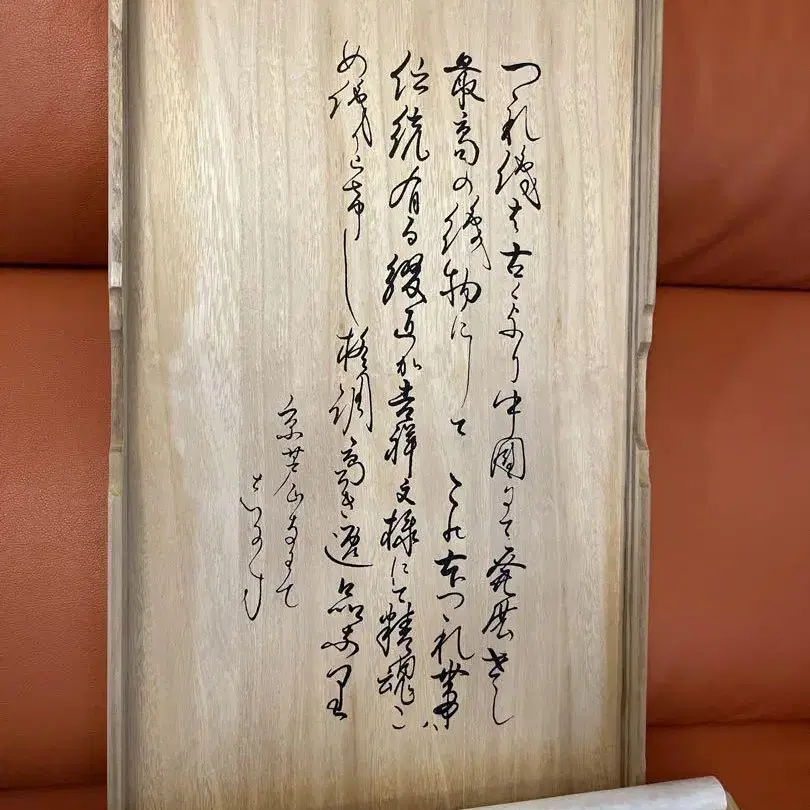 つゝれ織は古くより中国にて発展せし
最高の織物にして つゝれ帯ハ
伝統有る綴匠が吉祥文様にて精魂こ
め織り上げし格調高き逸品なり
京芦山寺にて